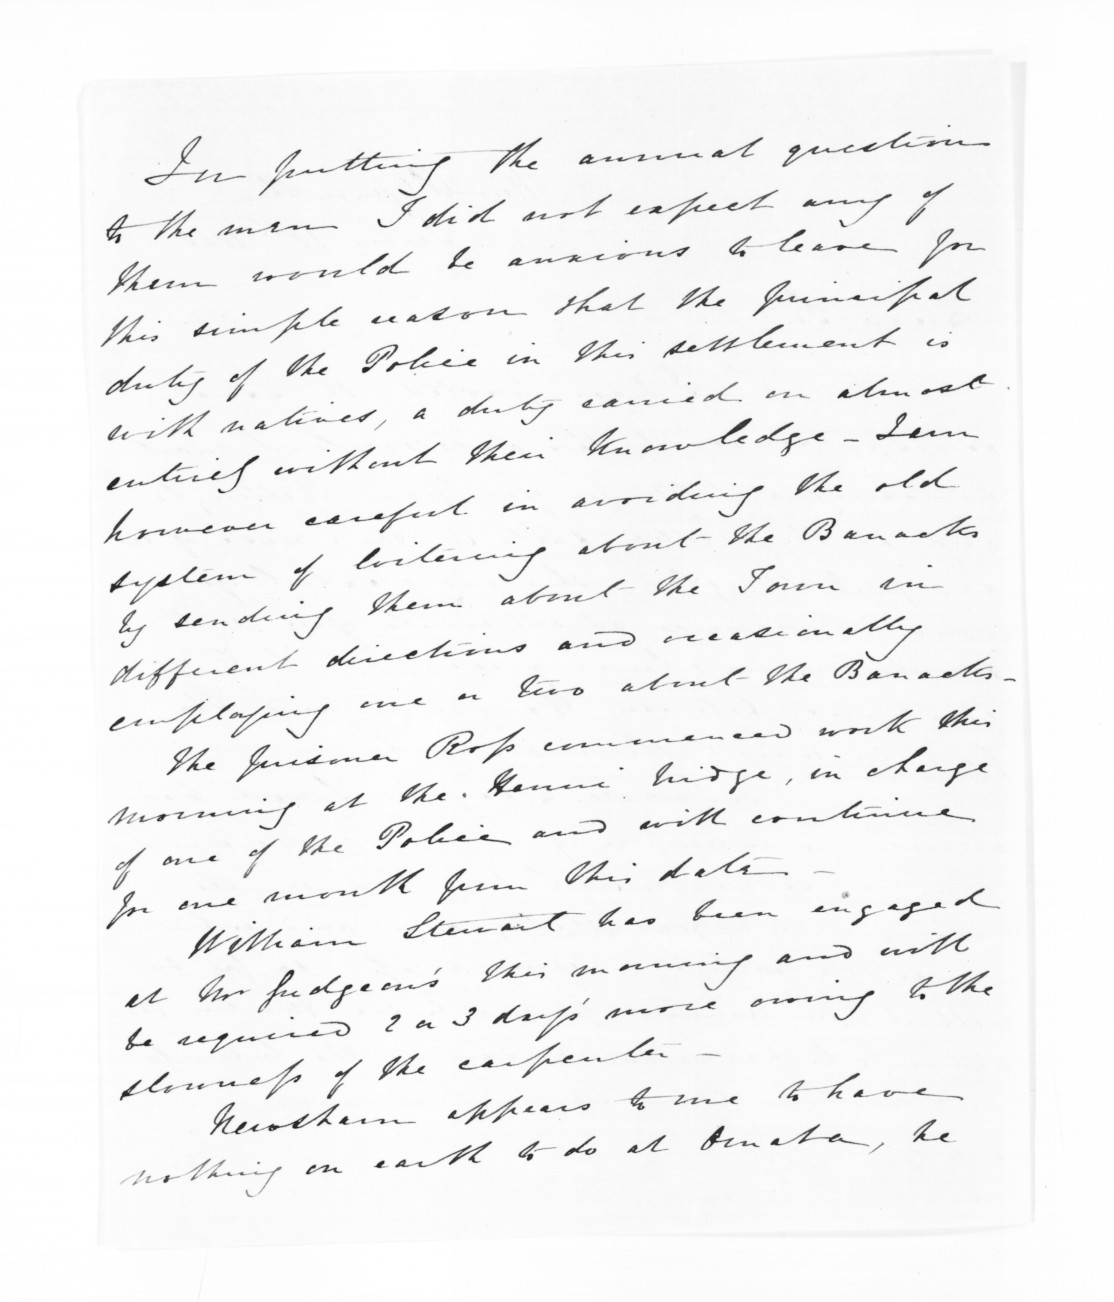 In putting the annual question
to the men I did not expect any of
them would be anxious to leave for
this simple reason that the principal
duty of the Police in this settlement is
with natives, a duty carried on almost
entirely without their Knowledge – I am
however careful in avoiding the old
system of loitering about the Barracks
by sending them about the Town in
different directions and occasionally
employing one or two about the Barracks –
The prisoner Ross commenced work this
morning at the Henui bridge, in charge
of one of the Police and will continue
for one month from this date –
William Stewart has been engaged
at Mr Gudgeon's this morning and will
be required 2 or 3 days' more owing to the
slowness of the carpenter –
Newsham appears to me to have
nothing on earth to do at Omata, he